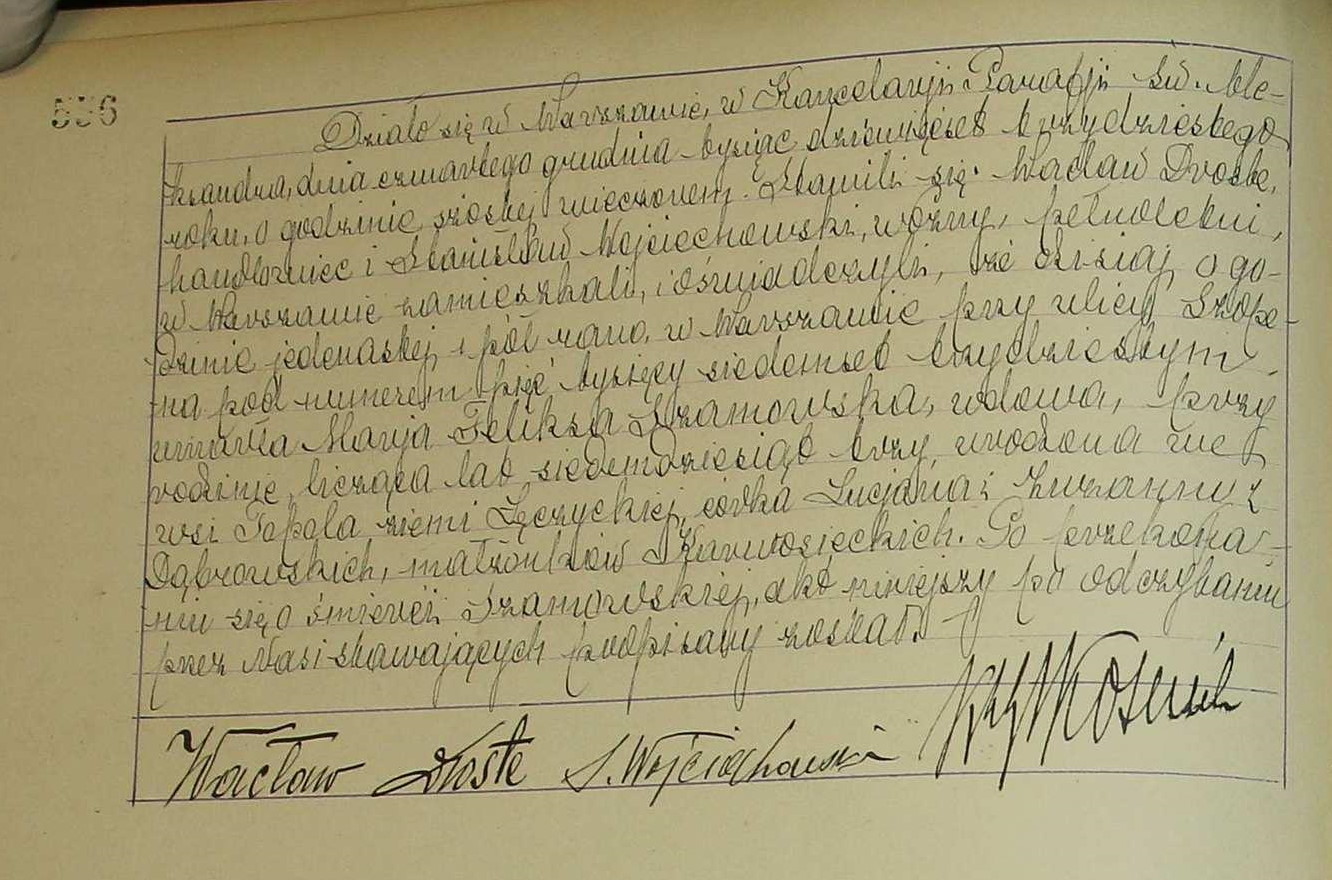 556
Działo się w Warszawie, w Kancelarji Parafji św. Ale-
ksandra, dnia czwartego grudnia tysiąc dziewięćset trzydziestego
roku, o godzinie szóstej wieczorem. Stawili się: Wacław Droste,
handlowiec i Stanisław Wojciechowski, woźny, pełnoletni,
w Warszawie zamieszkali, i oświadczyli, że dzisiaj, o go-
dzinie jedenastej i pół rano, w Warszawie przy ulicy Szope-
na pod numerem pięć tysięcy siedemset trzydziestym
umarła Marja Feliksa Szamowska, wdowa, przy
rodzinie, licząca lat siedemdziesiąt trzy, urodzona we
wsi Topola, ziemi Łęczyckiej, córka Lucjana i Zuzanny z
Dąbrowskich, małżonków Karwosieckich. Po przekona-
niu się o śmierci Szamowskiej, akt niniejszy po odczytaniu
przez Nas i stawających podpisany został.
Wacław Droste S. Wojciechowski